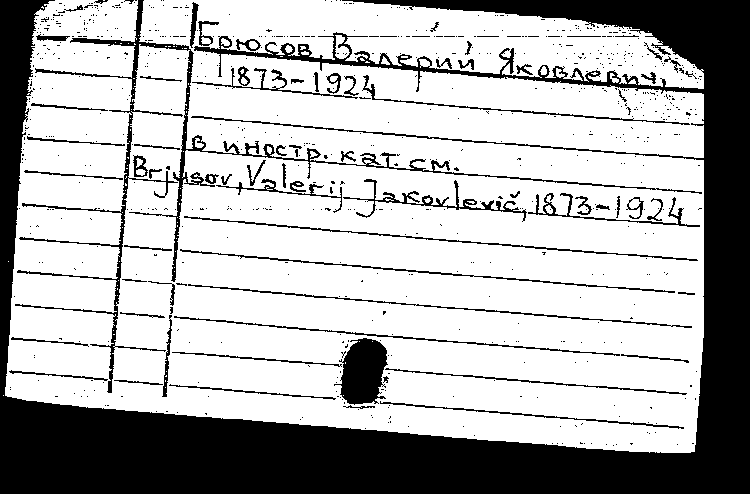 Брюсов, Валерий Яковлевич,
1873-1924
в иностр. кат. см.
Brjusov, Valerij Jakovlevič, 1873-1924